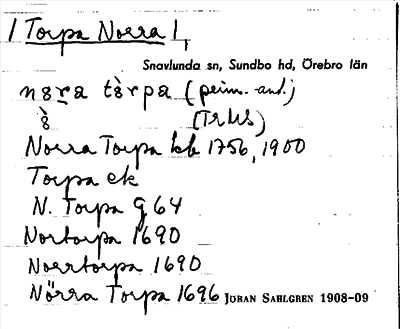 1 Torpa Norra 1,
Snavlunda sn, Sundbo hd, Örebro län
Norra Torpa kb 1756, 1900
Torpa ek
N. Torpa G 64
Nortorpa 1690
Noerrtorpa 1690
Nörra Torpa 1696 JÖRAN SAHLGREN 1908-09